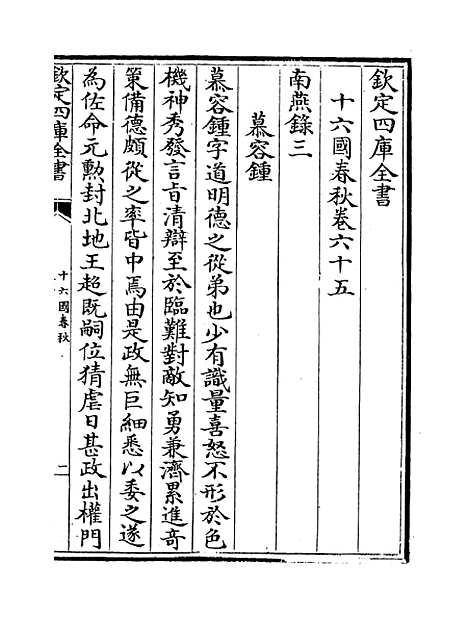 欽定四庫全書
十六國春秋卷六十五
南燕錄三
慕容鍾
慕容鍾字道明德之從弟也少有識量喜怒不形於色
機神秀發言㫖清辯至於臨難對敵知勇兼濟累進竒
策備德頗從之率皆中焉由是政無巨細悉以委之遂
為佐命元勲封北地王超既嗣位猜虐日甚政出權門
欽定四庫全書
十六國春秋